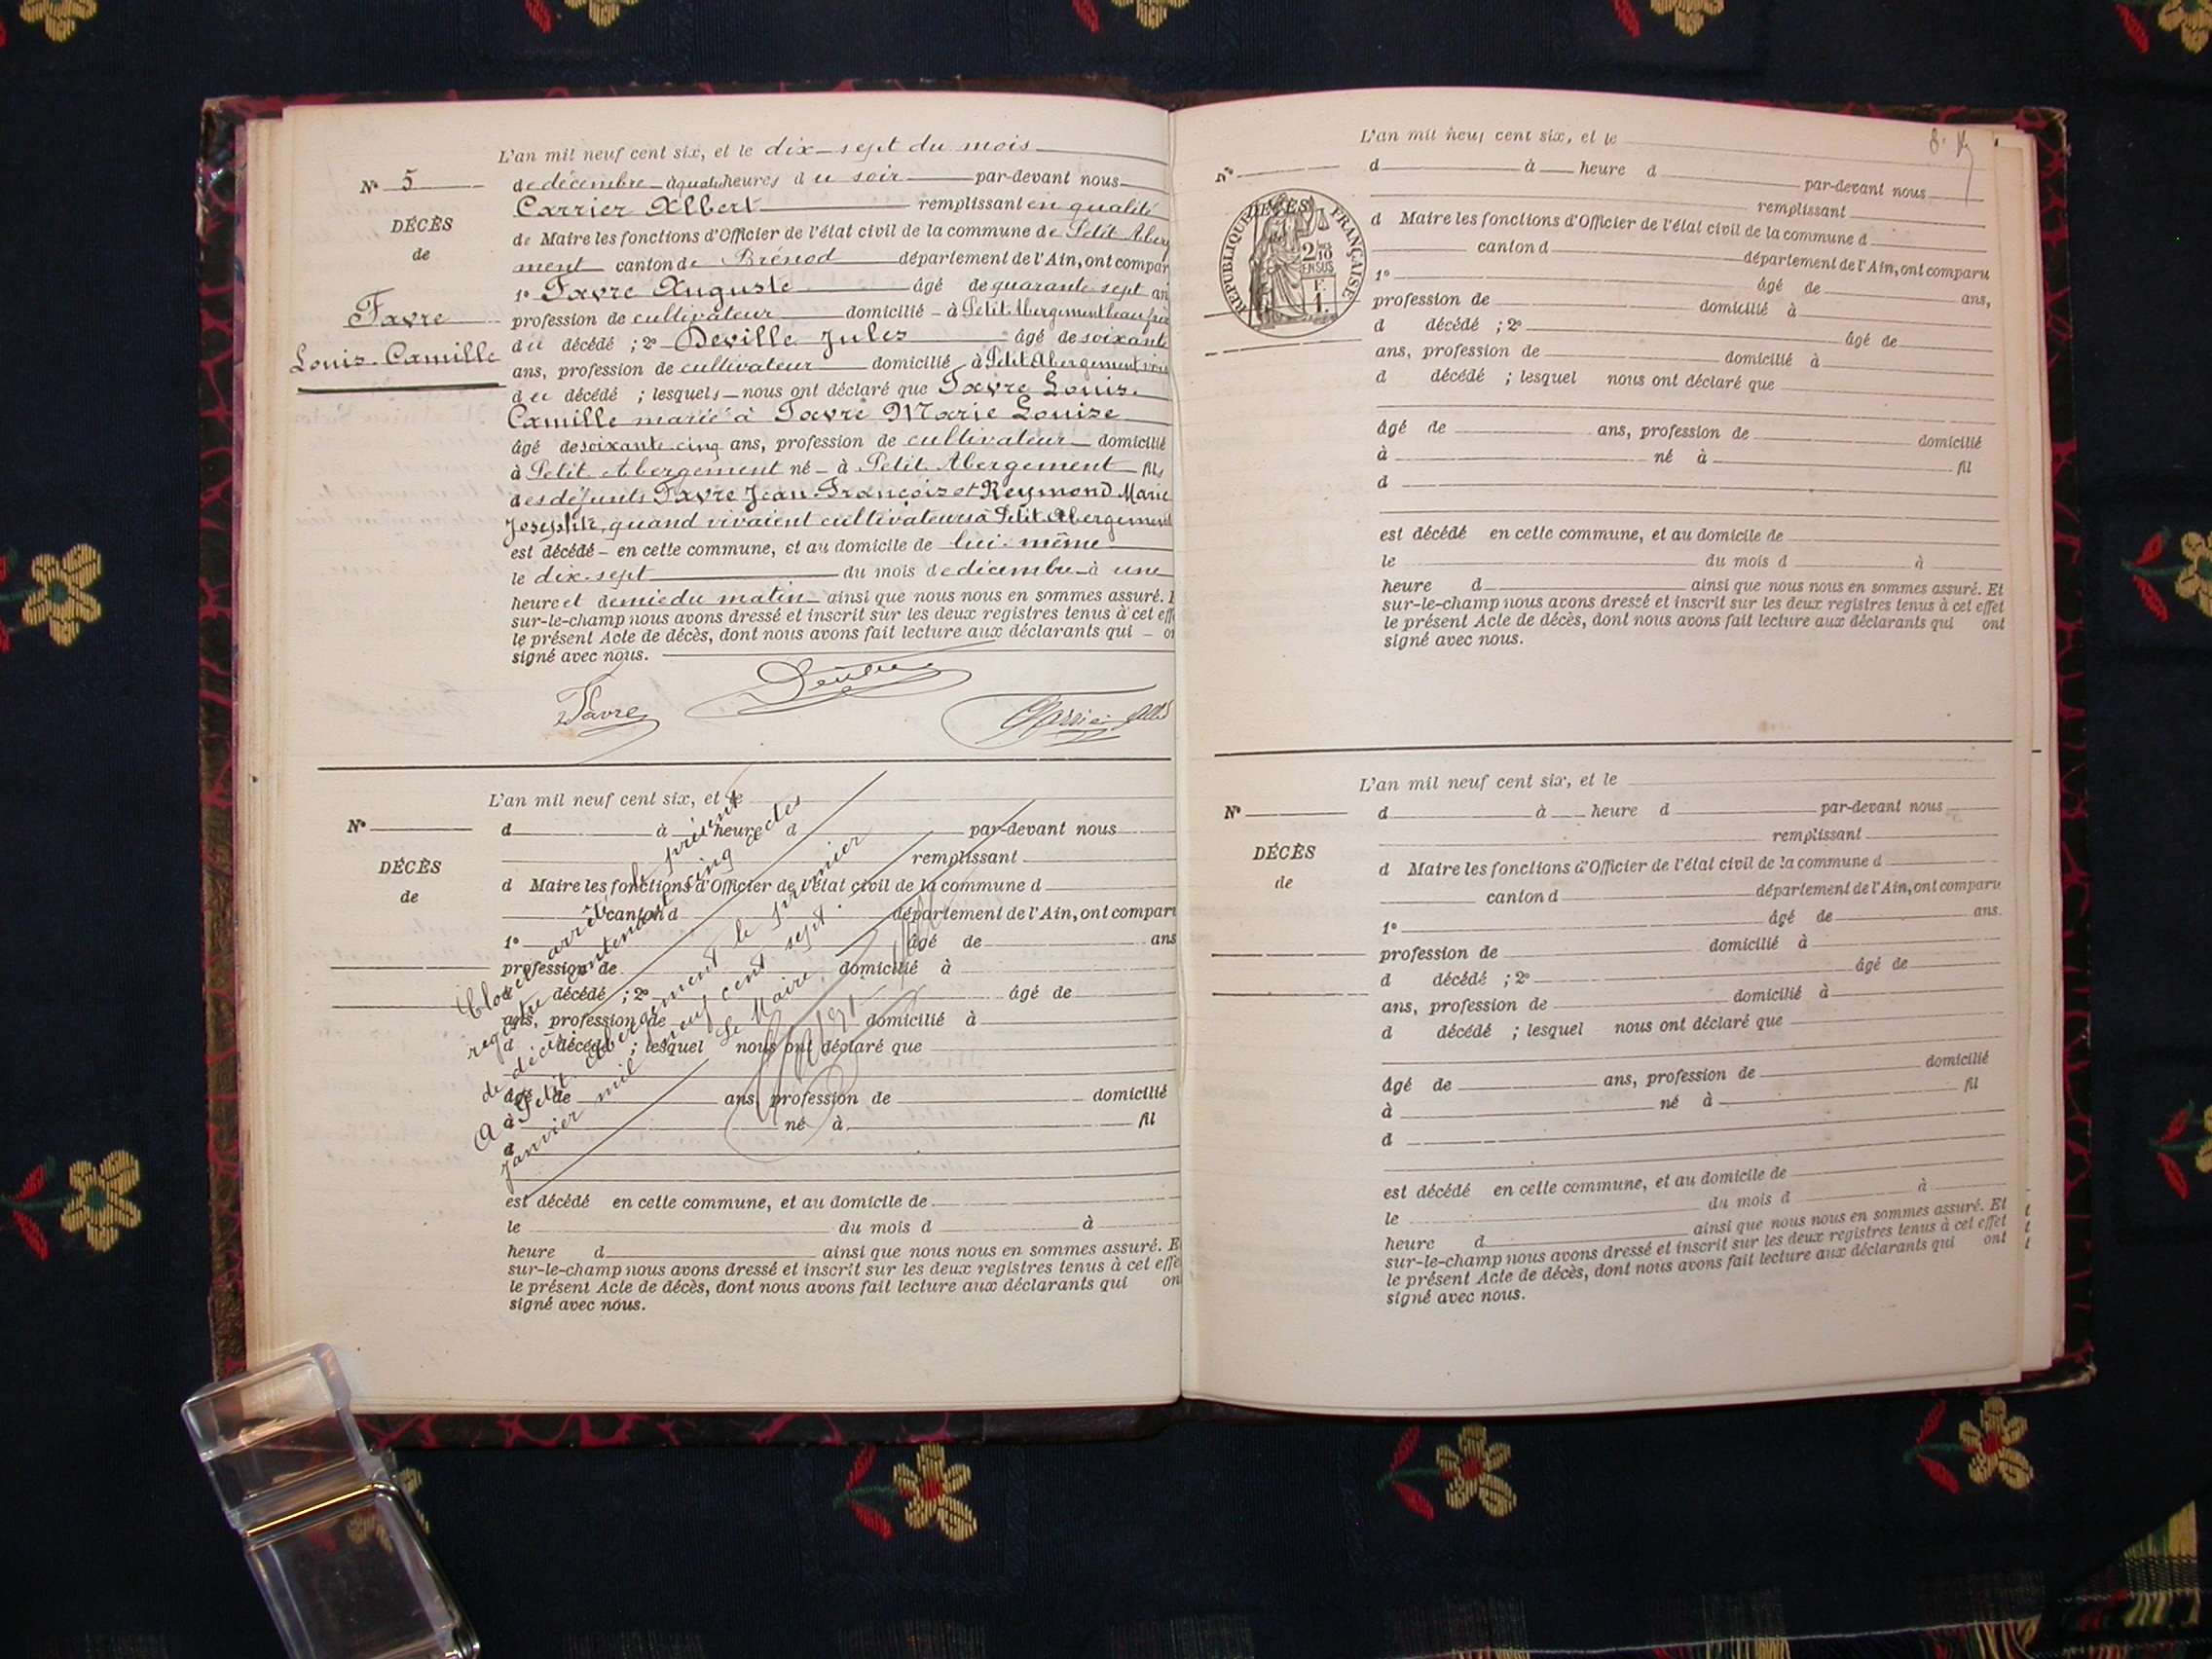 L'an mil neuf cent six, et le dix-sept du mois
N° 5
de décembre à quatre heures du soir par-devant nous
Carrier Albert remplissant en qualité
DÉCÈS
de Maire les fonctions d'Officier de l'état civil de la commune de Petit Aberg
de
ment canton de Brénod département de l'Ain, ont compar
1° Favre Auguste âgé de quarante sept an
Favre
profession de cultivateur domicilié à Petit Abergement beau frère
Louis-Camille
du décédé ; 2° Deville Jules âgé de soixante
ans, profession de cultivateur domicilié à Petit Abergement
du décédé ; lesquels nous ont déclaré que Favre Louis-
Camille marié à Favre Marie Louise
âgé de soixante cinq ans, profession de cultivateur domicilié
à Petit Abergement né à Petit Abergement fils
des défunts Favre Jean-François et Reymond Marie
Josephte, quand vivaient cultivateurs à Petit Abergement
est décédé en cette commune, et au domicile de lui-même
le dix-sept du mois de décembre à une
heure et demie du matin ainsi que nous nous en sommes assuré. E
sur-le-champ nous avons dressé et inscrit sur les deux registres tenus à cet effe
le présent Acte de décès, dont nous avons fait lecture aux déclarants qui on
signé avec nous.
Favre
Deville
Carrier Albt
L'an mil neuf cent six, et le
N°
d à heure d par-devant nous
remplissant
DÉCÈS
d Maire les fonctions d'Officier de l'état civil de la commune d
de
canton d département de l'Ain, ont compar
1° âgé de ans
profession de domicilié à
d décédé ; 2° âgé de
ans, profession de domicilié à
d décédé ; lesquel nous ont déclaré que
âgé de ans, profession de domicilié
à né à fil
d
est décédé en cette commune, et au domicile de
le du mois d à
heure d ainsi que nous nous en sommes assuré. E
sur-le-champ nous avons dressé et inscrit sur les deux registres tenus à cet effe
le présent Acte de décès, dont nous avons fait lecture aux déclarants qui on
signé avec nous.
Clos et arrêté le présent
registre contenant cinq actes
de décès
A Petit Abergement le premier
janvier mil neuf cent sept.
Le Maire,
L'an mil neuf cent six, et le
N°
d à heure d par-devant nous
remplissant
DÉCÈS
RÉPUBLIQUE FRANÇAISE
2/10 EN SUS
F. 1.
d Maire les fonctions d'Officier de l'état civil de la commune d
canton d département de l'Ain, ont comparu
1° âgé de ans,
profession de domicilié à
d décédé ; 2° âgé de
ans, profession de domicilié à
d décédé ; lesquel nous ont déclaré que
âgé de ans, profession de domicilié
à né à fil
d
est décédé en cette commune, et au domicile de
le du mois d à
heure d ainsi que nous nous en sommes assuré. Et
sur-le-champ nous avons dressé et inscrit sur les deux registres tenus à cet effet
le présent Acte de décès, dont nous avons fait lecture aux déclarants qui ont
signé avec nous.
L'an mil neuf cent six, et le
N°
d à heure d par-devant nous
remplissant
DÉCÈS
d Maire les fonctions d'Officier de l'état civil de la commune d
de
canton d département de l'Ain, ont comparu
1° âgé de ans.
profession de domicilié à
d décédé ; 2° âgé de
ans, profession de domicilié à
d décédé ; lesquel nous ont déclaré que
âgé de ans, profession de domicilié
à né à fil
d
est décédé en cette commune, et au domicile de
le du mois d à
heure d ainsi que nous nous en sommes assuré. Et
sur-le-champ nous avons dressé et inscrit sur les deux registres tenus à cet effet
le présent Acte de décès, dont nous avons fait lecture aux déclarants qui ont
signé avec nous.